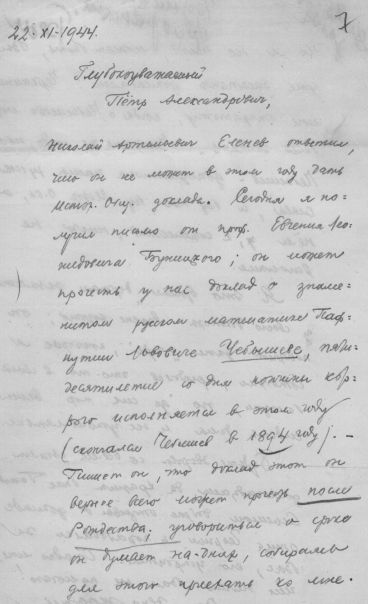 7
22·XI·1944.
Глубокоуважаемый
Пётр Александрович,
Николай Артемьевич Еленев ответил,
что он не может в этом году дать
Истор. Общ. доклада. Сегодня я по-
лучил письмо от проф. Евгения Лео-
нидовича Буницкого; он может
прочесть у нас доклад о знаме-
нитом русском математике Паф-
нутии Львовиче Чебышеве, пяти-
десятилетие со дня кончины кото-
рого исполняется в этом году
(скончался Чебышев в 1894 году). —
Пишет он, что доклад этот он
вернее всего может прочесть после
Рождества; уговориться о сроке
он думает на-днях, собираясь
для этого приехать ко мне.